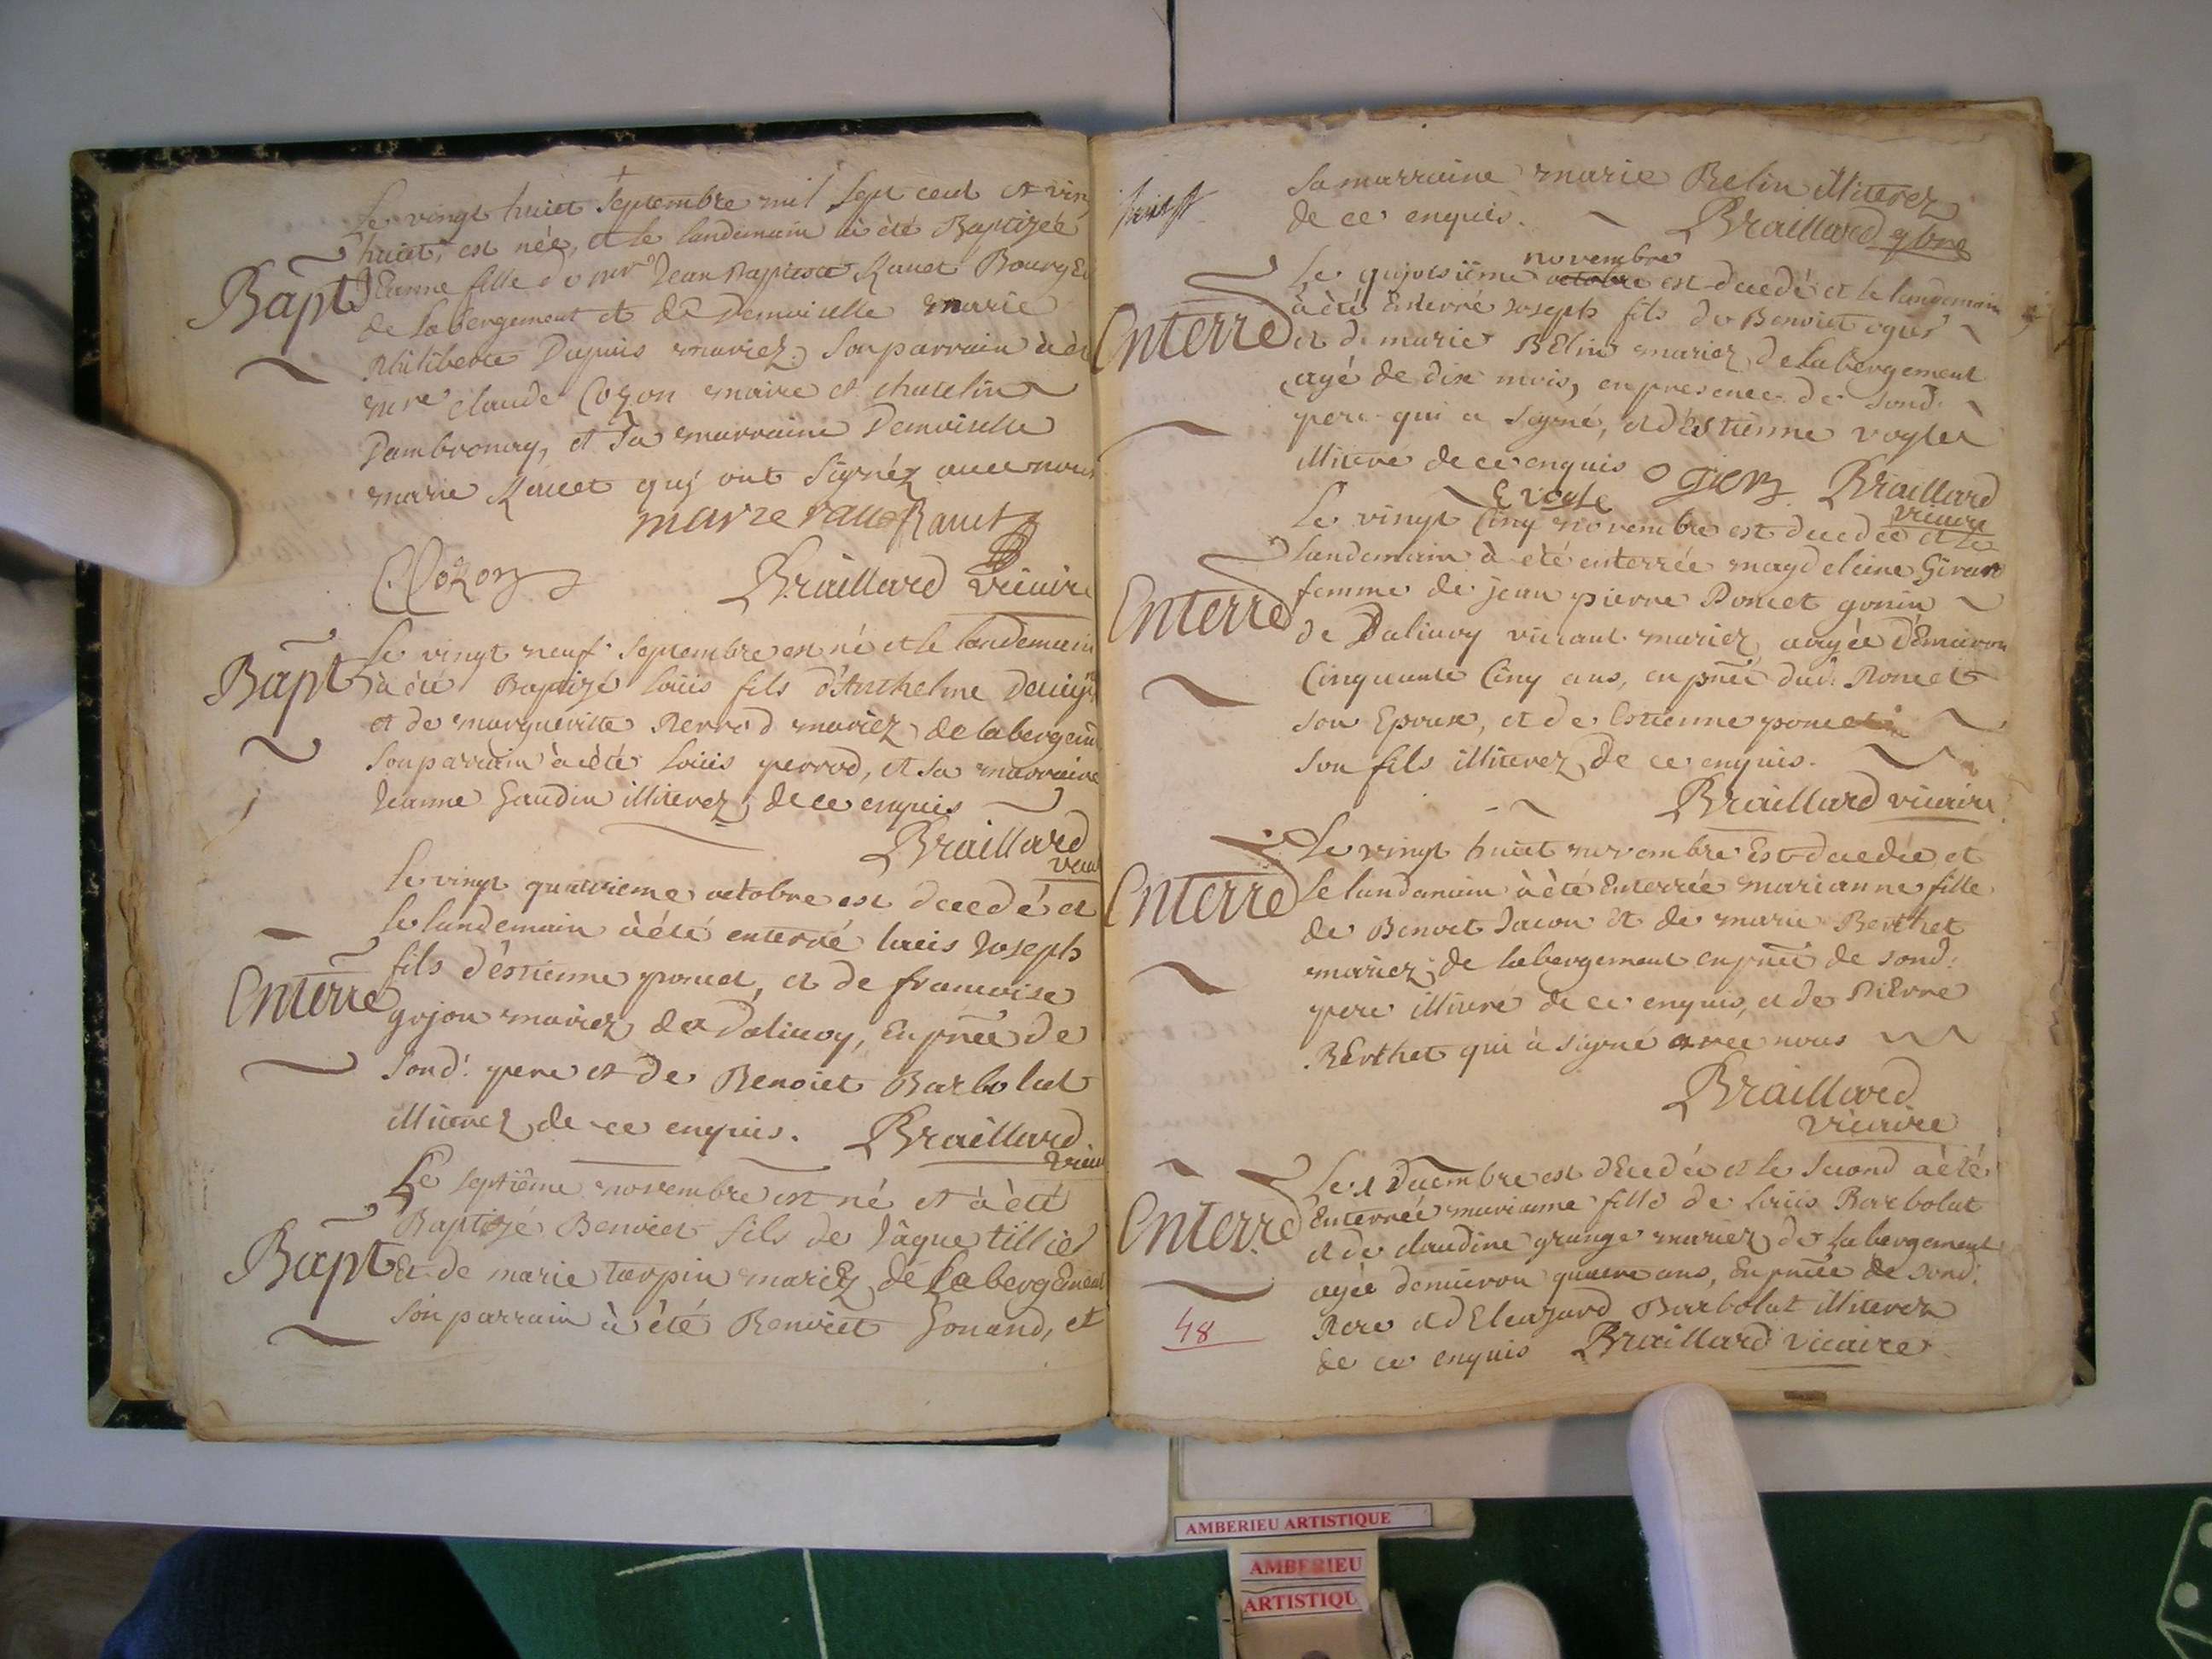 Le vingt huict Septembre mil sept cent et vin
huict, est née, et le landemain à été Baptizée
Bapt
Jeanne fille de mr Jean Baptiste Rauet Bourge
de labergement et de Demoiselle marie
Philiberte Dupuis mariez, son parrain à é
mre claude Cozon maire et chatelin
Dambronay, et Sa marraine Demoiselle
marie Rauet quj ont Signéz auec nous
marie rauet Rauet
C Cozon Braillard vicaire
Le vingt neuf Septembre est né et le landemain
Bapt
à été Baptizé Loüis fils d'Anthelme
et de margueritte Perrod mariéz de labergem
Son parrain à été Loüis perrod, et sa marraine
Jeanne Gaudin illiterez de ce enquis
Braillard
vicai
Le vingt quatrieme octobre est decedé et
le landemain à été enterré louis Joseph
Enterré
fils d'éstienne poncet, et de francoise
gojon mariez de Daliuoy, En pnce de
Sond: pere et de Benoiet Barbolat
illiterez de ce enquis. Braillard
vicai
Le septiême novembre est né et à été
Baptizé Benoiet fils de Jâque tillier
Bapt
Et de marie tarpin mariEz de labergEment
Son parrain à été Benoiet Gonand, et
sa marraine marie Belin illiterez
de ce enquis. Braillard
novembre
Le octobre est decedé et le landemain
Enterré
à été Enterré Joseph fils de Benoiet ogier
et de marie BElin mariez de labergement
agé de dix mois, en presence de Sond.
pere qui a Signé, et d'éstienne vogler
illiteré de ce enquis OGIER Braillard
E vogle vicaire
Le vingt Cinq novembre est decedée et le
landemain à été enterrée magdeleine Girar
Enterré
femme de jean pierre Poncet gonin
de Daliuoy viuant mariez, aagée d'Enuiron
Cinquante Cinq ans, en pnce dud. Poncet
son Epoux, et de Estienne poncet
Son fils illiterez de ce enquis.
Braillard vicaire
Le vingt huict novembre Est decedée et
Enterré
le landemain à été Enterrée marianne fille
de Benoet Jacon et de marie Berthet
mariez de labergement en pnce de sond:
pere illiteré de ce enquis, et de PiErre
BErthet qui à signé avec nous
Braillard
vicaire
Le 1 Decembre est dEcedée et le Second à été
Enterré
Enterrée marianne fille de Loüis Barbolat
et de claudine grange mariez de labergement
agée denuiron quatre ans, En pnce de Sond.
Pere et d'Eleazard Barbolat illiterez
de ce enquis Braillard vicaire
48
AMBERIEU ARTISTIQUE
AMBERIEU
ARTISTIQU